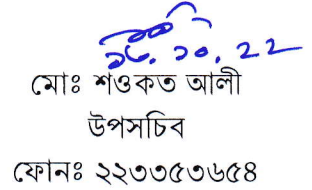 ১৬.১০.২২
মোঃ শওকত আলী
উপসচিব
ফোনঃ ২২৩৩৫৩৬৫৪